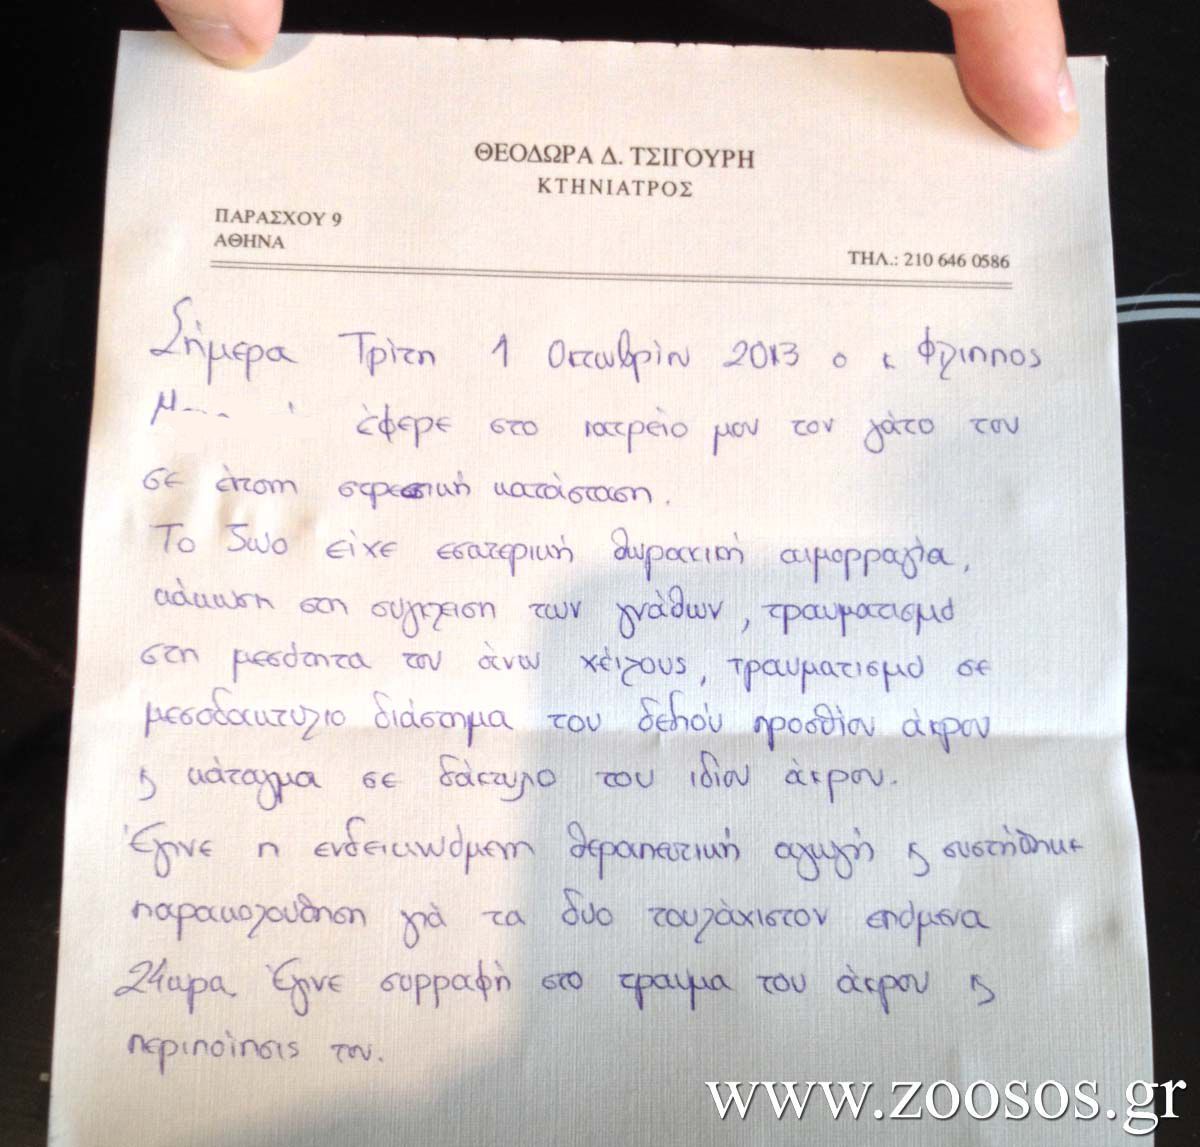 ΘΕΟΔΩΡΑ Δ. ΤΣΙΓΟΥΡΗ
ΚΤΗΝΙΑΤΡΟΣ
ΠΑΡΑΣΧΟΥ 9
ΑΘΗΝΑ
ΤΗΛ.: 210 646 0586
Σήμερα Τρίτη 1 Οκτωβρίου 2013 ο κ Φίλιππος
Μ.... έφερε στο ιατρείο μου τον γάτο του
σε κατάσταση.
Το ζώο είχε εσωτερική θωρακική αιμορραγία,
κάκωση στη σύγκλειση των γνάθων, τραυματισμό
στη μεσότητα του άνω χείλους, τραυματισμό σε
μεσοδακτύλιο διάστημα του δεξιού προσθίου άκρου
ϗ κάταγμα σε δάκτυλο του ιδίου άκρου.
Έγινε η ενδεικνυόμενη θεραπευτική αγωγή ϗ συστήθηκε
παρακολούθηση γιά τα δυο τουλάχιστον επόμενα
24ωρα Έγινε συρραφή στο τραύμα του άκρου ϗ
περιποίησις του.
www.zoosos.gr